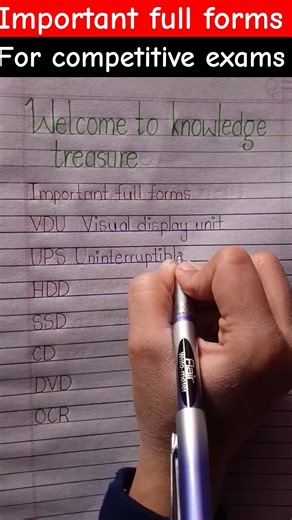 Important full forms
For competitive exams
Welcome to knowledge
treasure
Important full forms
VDU Visual display unit
UPS Uninterruptible
HDD
SSD
CD
DVD
OCR
Flair